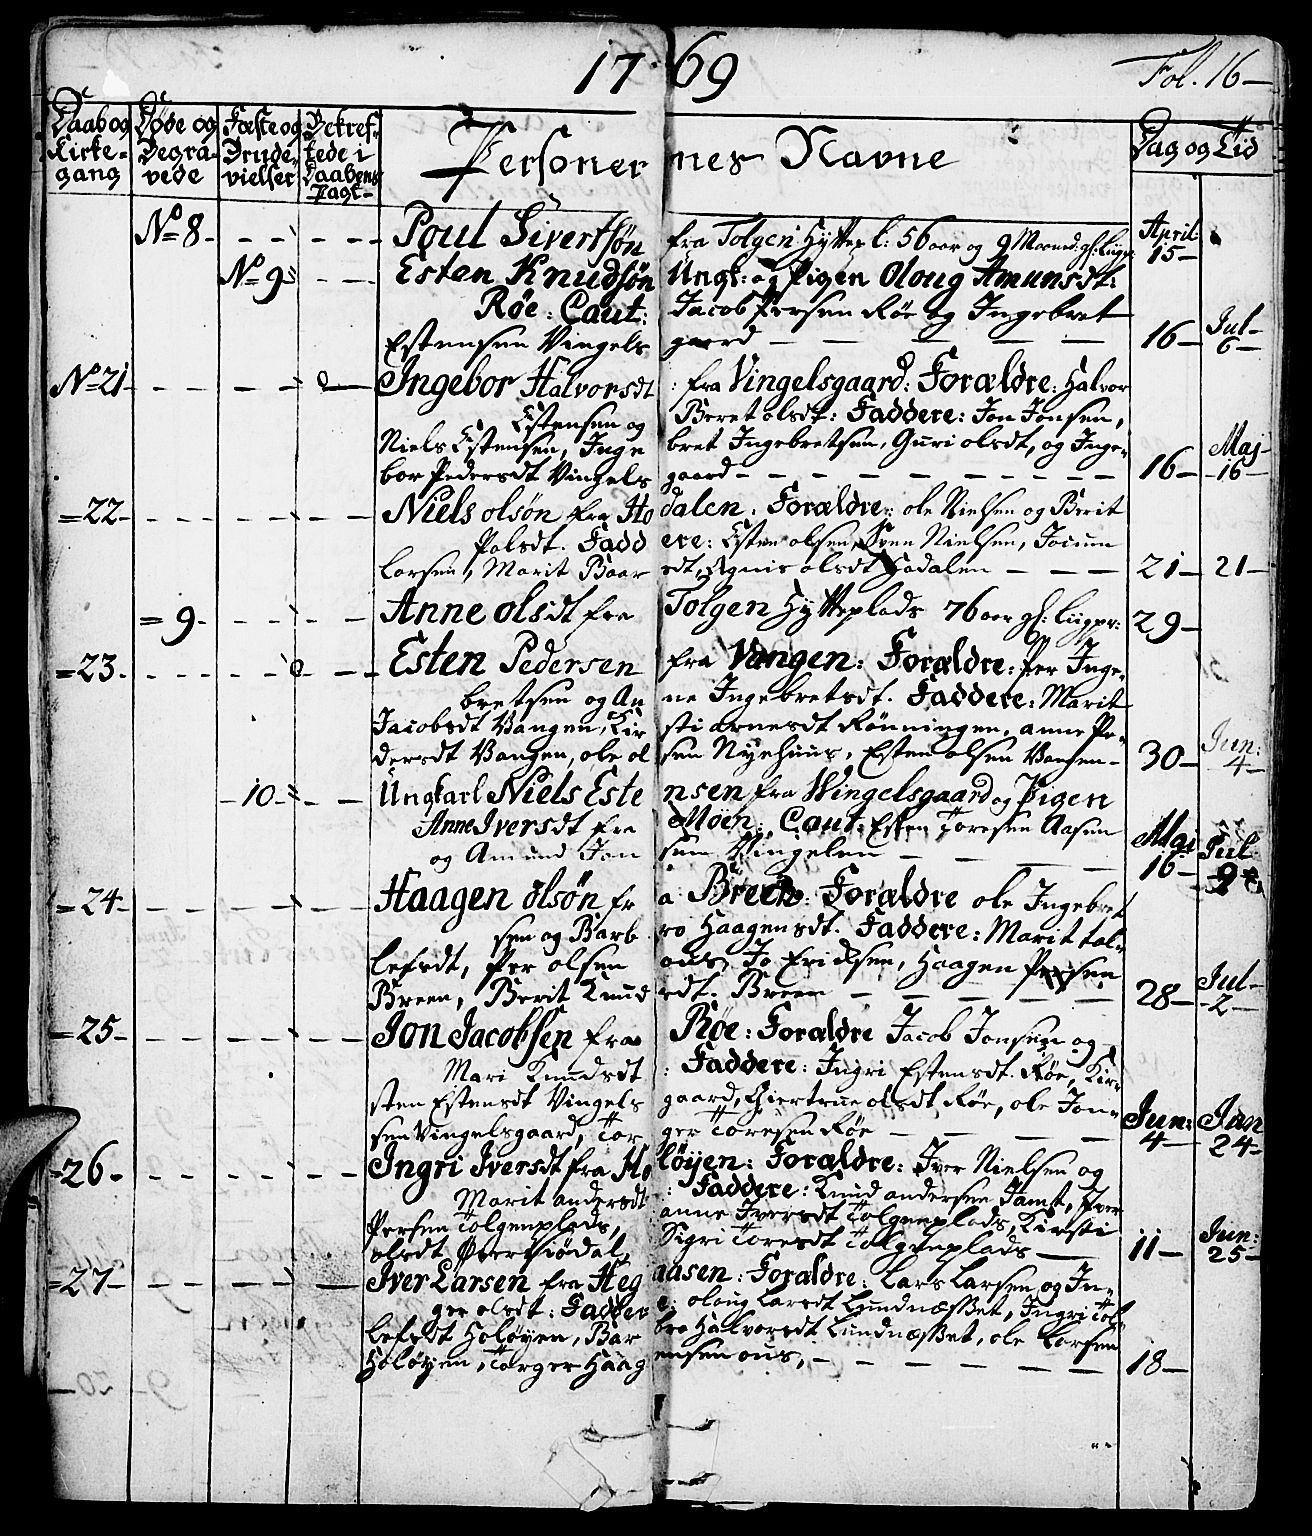 1769 Fol. 16-
Daab og Kirke-gang Døde og Begra-vede Fæste og Brude-vielser Bekref-tede i Daabens Pagt- Personernes Navne Dag og Tid
No 8- Poul Sivertsøn fra Tolgen Hyttepl: 56 aar og 9 Maaned: April 15-
No 9 Esten Knudsøn Ungk: og Pigen Oloug Amunsdt:
Røe: Caut: Jacob Persen Røe og Ingebret
Estensen Vingelsgaard - 16- Jul- 6-
No 21 Ingebor Halvorsdt: fra Vingelsgaard: Forældre: Halvor
Estensen og Beret olsdt: Faddere: Jon Jonsen,
Niels Estensen, Ingebret Ingebretsen, Guri olsdt, og Inge-
bor Pedersdt Vingelsgaard - 16- Maj- 16-
=22- Niels olsøn fra Hodalen: Forældre: ole Nielsen og Berit
Polsdt. Faddere: Esten olsen, Sven Nielsen, Jocum
Larsen, Marit Baarsdt, Agnis olsdt Hodalen - 21- 21-
=9- Anne olsdt fra Tolgen Hytteplads 76 aar 29-
=23- Esten Pedersen fra Vangen: Forældre: Per Inge-
bretsen og Anne Ingebretsdt. Faddere: Marit
Jacobsdt Vangen, Kirsti arnesdt Rønningen, anne Pe-
dersdt Vangen, ole olsen Nyehuus, Esten olsen Vangen- 30- Jun: 4-
-10- Ungkarl Niels Estensen fra Wingelsgaard og Pigen
Anne Iversdt fra Moen: Caut: Esten Toresen Aasen
og Amund Jonsen Vingelen - Maj 16- Jul: 9
=24- Haagen olsøn fra Breen: Forældre ole Ingebret
sen og Barbro Haagensdt. Faddere: Marit tol-
lefsdt, Per olsen ous, Jo Ericksen, Haagen Persen
Breen, Berit Knudsdt: Breen - 28- Jul- -2-
=25- Jon Jacobsen fra Røe: Forældre Jacob Jonsen og
Mari Knudsdt: Faddere: Ingri Estensdt. Røe, Kir-
sten Estensdt Vingelsgaard, Giertrue olsdt Røe, ole Jon-
sen Vingelsgaard, Torger Toresen Røe - Jun: 4- Jun 24-
-26- Ingri Iversdt fra Holøyen: Forældre: Iver Nielsen og
Marit andersdt: Faddere: Knud andersen Tamst, Iver
Persen Tolgenplads, anne Iversdt Tolgenplads, Kirsti
olsdt Øversiødal, Sigri Toresdt Tolgenplads - 11- Jun: 25-
=27- Iver Larsen fra Hegaasen: Forældre: Lars Larsen og In-
ger olsdt: Faddere: oloug Larsdt Lundnæsset, Ingri Tol-
lefsdt Holøyen, Barbro Halvorsdt Lundnæsset, ole Larsen
Holøyen, Torger Haagensen ous, - 18-